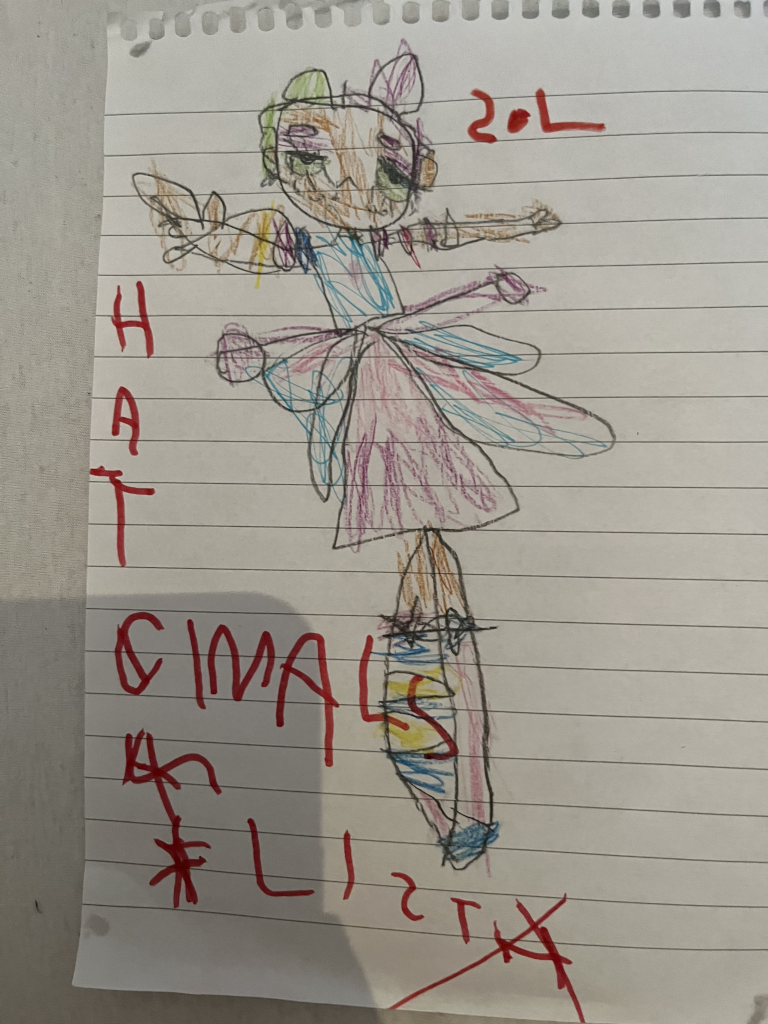 SOL
H
A
T
CIMALS
LIST